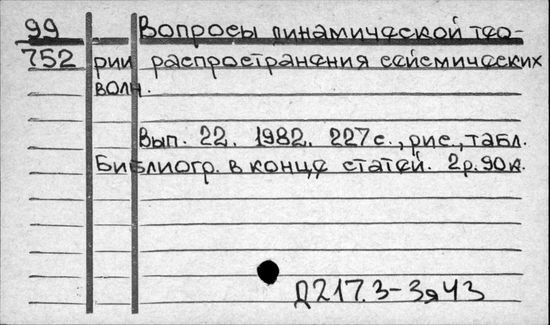 99 Вопросы динамической тео-
752 рии распространения сейсмических
волн.
Вып. 22. 1982. 227с., рис., табл.
Библиогр. в конце статей. 2р.90к.
Д217.3-3я43